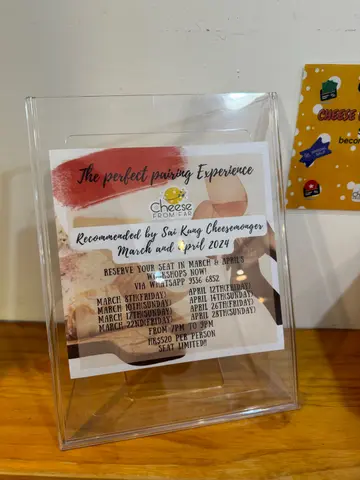 The perfect pairing Experience
Cheese
FROM FAR
Recommended by Sai Kung Cheesemonger
March and April 2024
RESERVE YOUR SEAT IN MARCH & APRIL'S
WORKSHOPS NOW!
VIA WHATSAPP 9336 6852
MARCH 8TH(FRIDAY) APRIL 12TH(FRIDAY)
MARCH 10TH(SUNDAY) APRIL 14TH(SUNDAY)
MARCH 17TH(SUNDAY) APRIL 26TH(FRIDAY)
MARCH 22ND(FRIDAY) APRIL 28TH(SUNDAY)
FROM 7PM TO 9PM
HK$520 PER PERSON
SEAT LIMITED!!
CHEESE